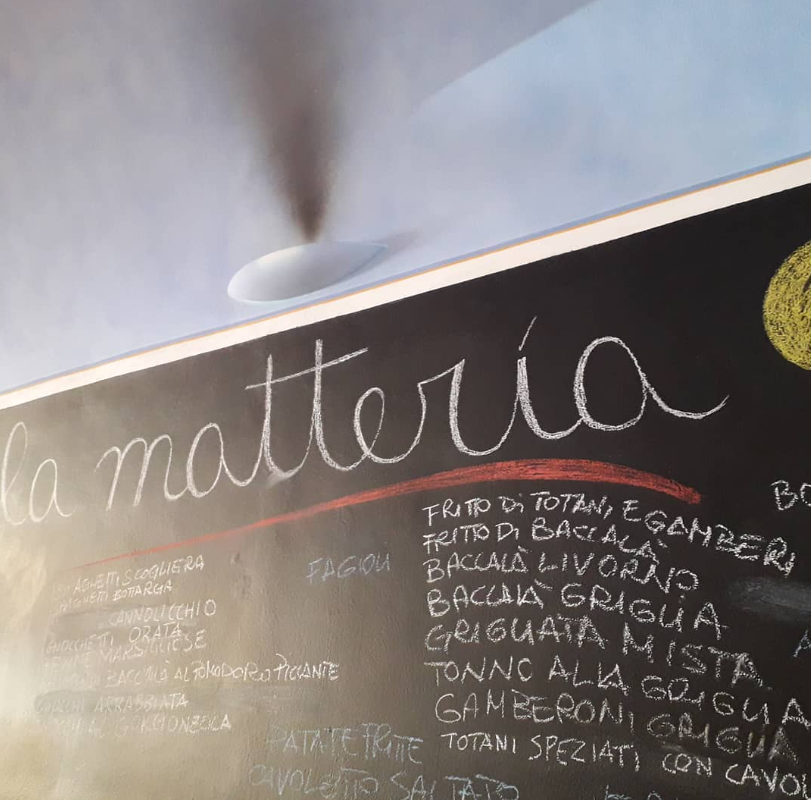 la matteria
SPAGHETTI SCOGLIERA
SPAGHETTI BOTTARGA
CANNOLICCHIO
GNOCCHETTI ORATA
MARSIGLIESE
BACCALÀ AL POMODORO PICCANTE
GNOCCHI ARRABBIATA
GNOCCHI AL GORGONZOLA
FAGIOLI
PATATE FRITTE
CAVOLETTO SALTATO
FRITTO DI TOTANI, E GAMBERI
FRITTO DI BACCALÀ
BACCALÀ LIVORNO
BACCALÀ GRIGLIA
GRIGLIATA MISTA
TONNO ALLA GRIGLIA
GAMBERONI GRIGLIA
TOTANI SPEZIATI CON CAVOL
BO